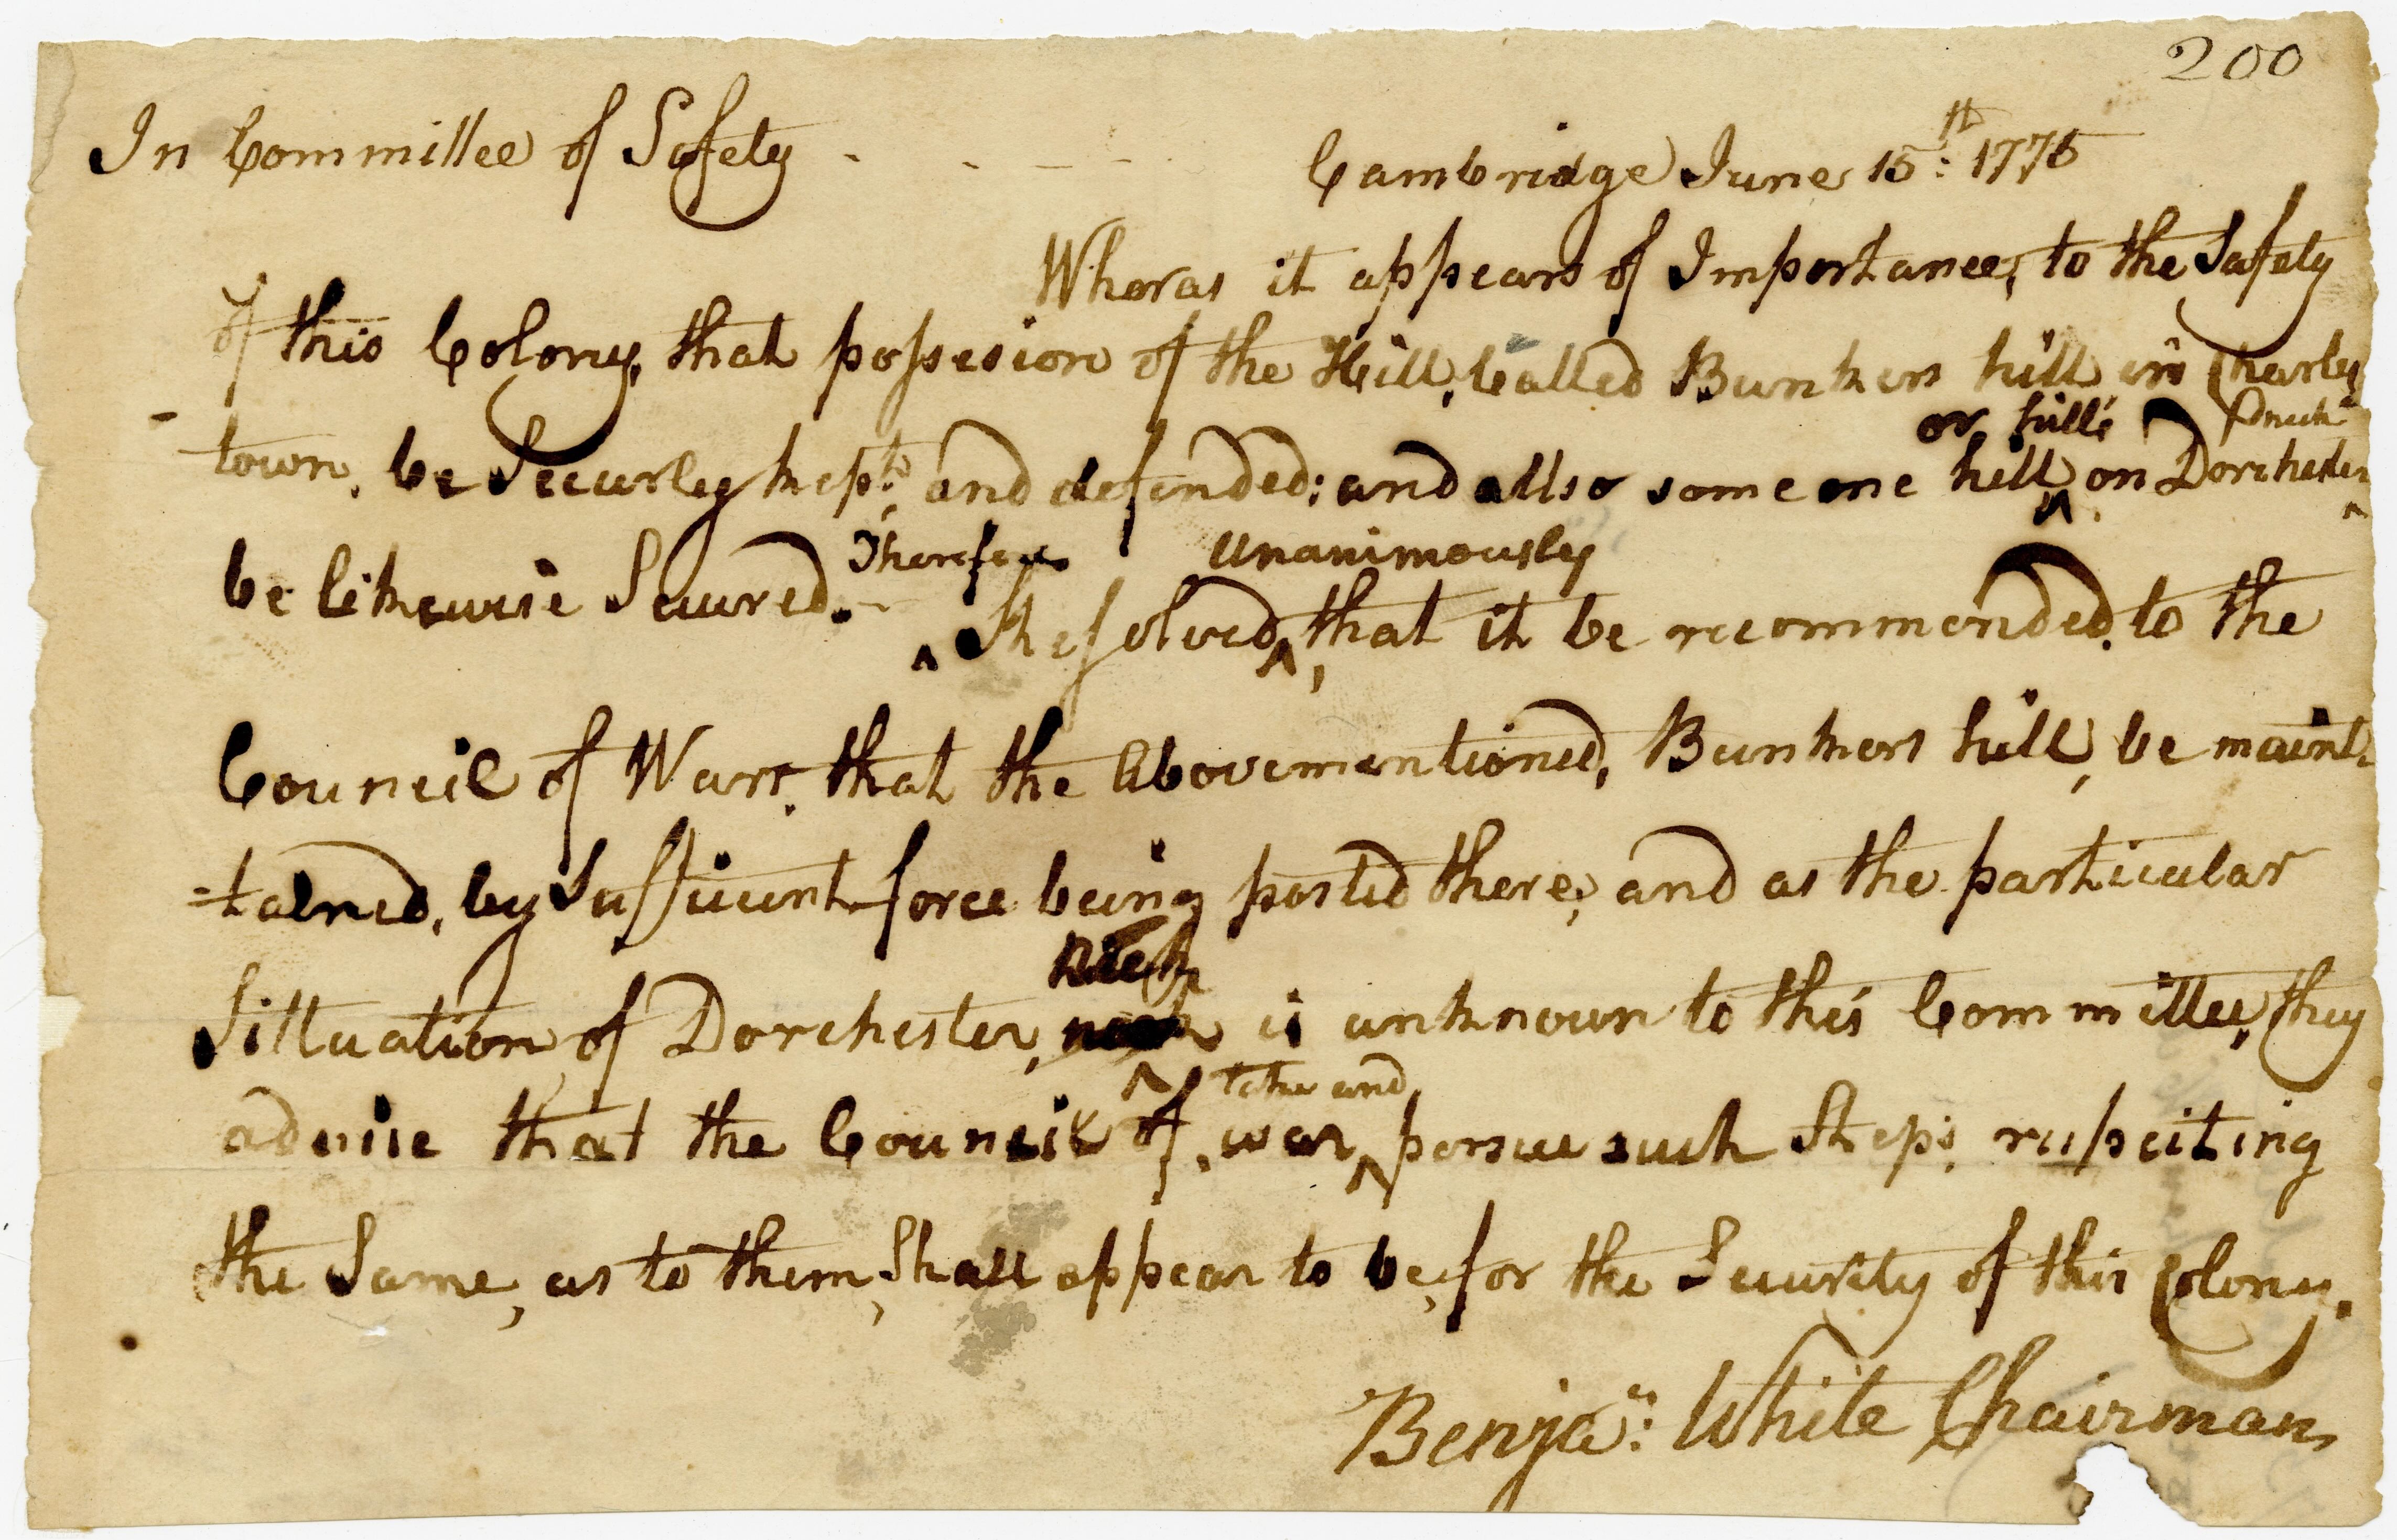 200
In Committee of Safety - - - - Cambridge June 15th: 1775
Wheras it appears of Importance, to the Safety
of this Colony, that possesion of the Hill, Called Bunkers hill in Charles
or hills neck
- town, be Securley kept, and defended; and allso some one hill ^ on Dorchester ^
Therefore Unanimously
be likewise Secured.- ^ Resolved ^, that it be recommended, to the
Council of Warr, that the Abovementioned, Bunkers hill, be maint-
=tained, by Sufficient force being posted there; and as the particular
neck
Sittuation of Dorchester, neck is unknown to this Committee, they
^ take and
advise that the Council of, war ^ persue such Steps, respecting
the Same, as to them, Shall appear to be, for the Security of this Colony.
Benja:n White Chairman